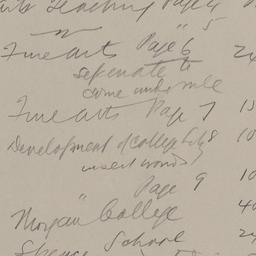 Teaching Page 4
" 5
Fine arts Page 6 24
separate to
come under rule
Fine Arts Page 7 15
Development of College 8 10
insert words
Page 9 10
"Morgan" College 40
School 24